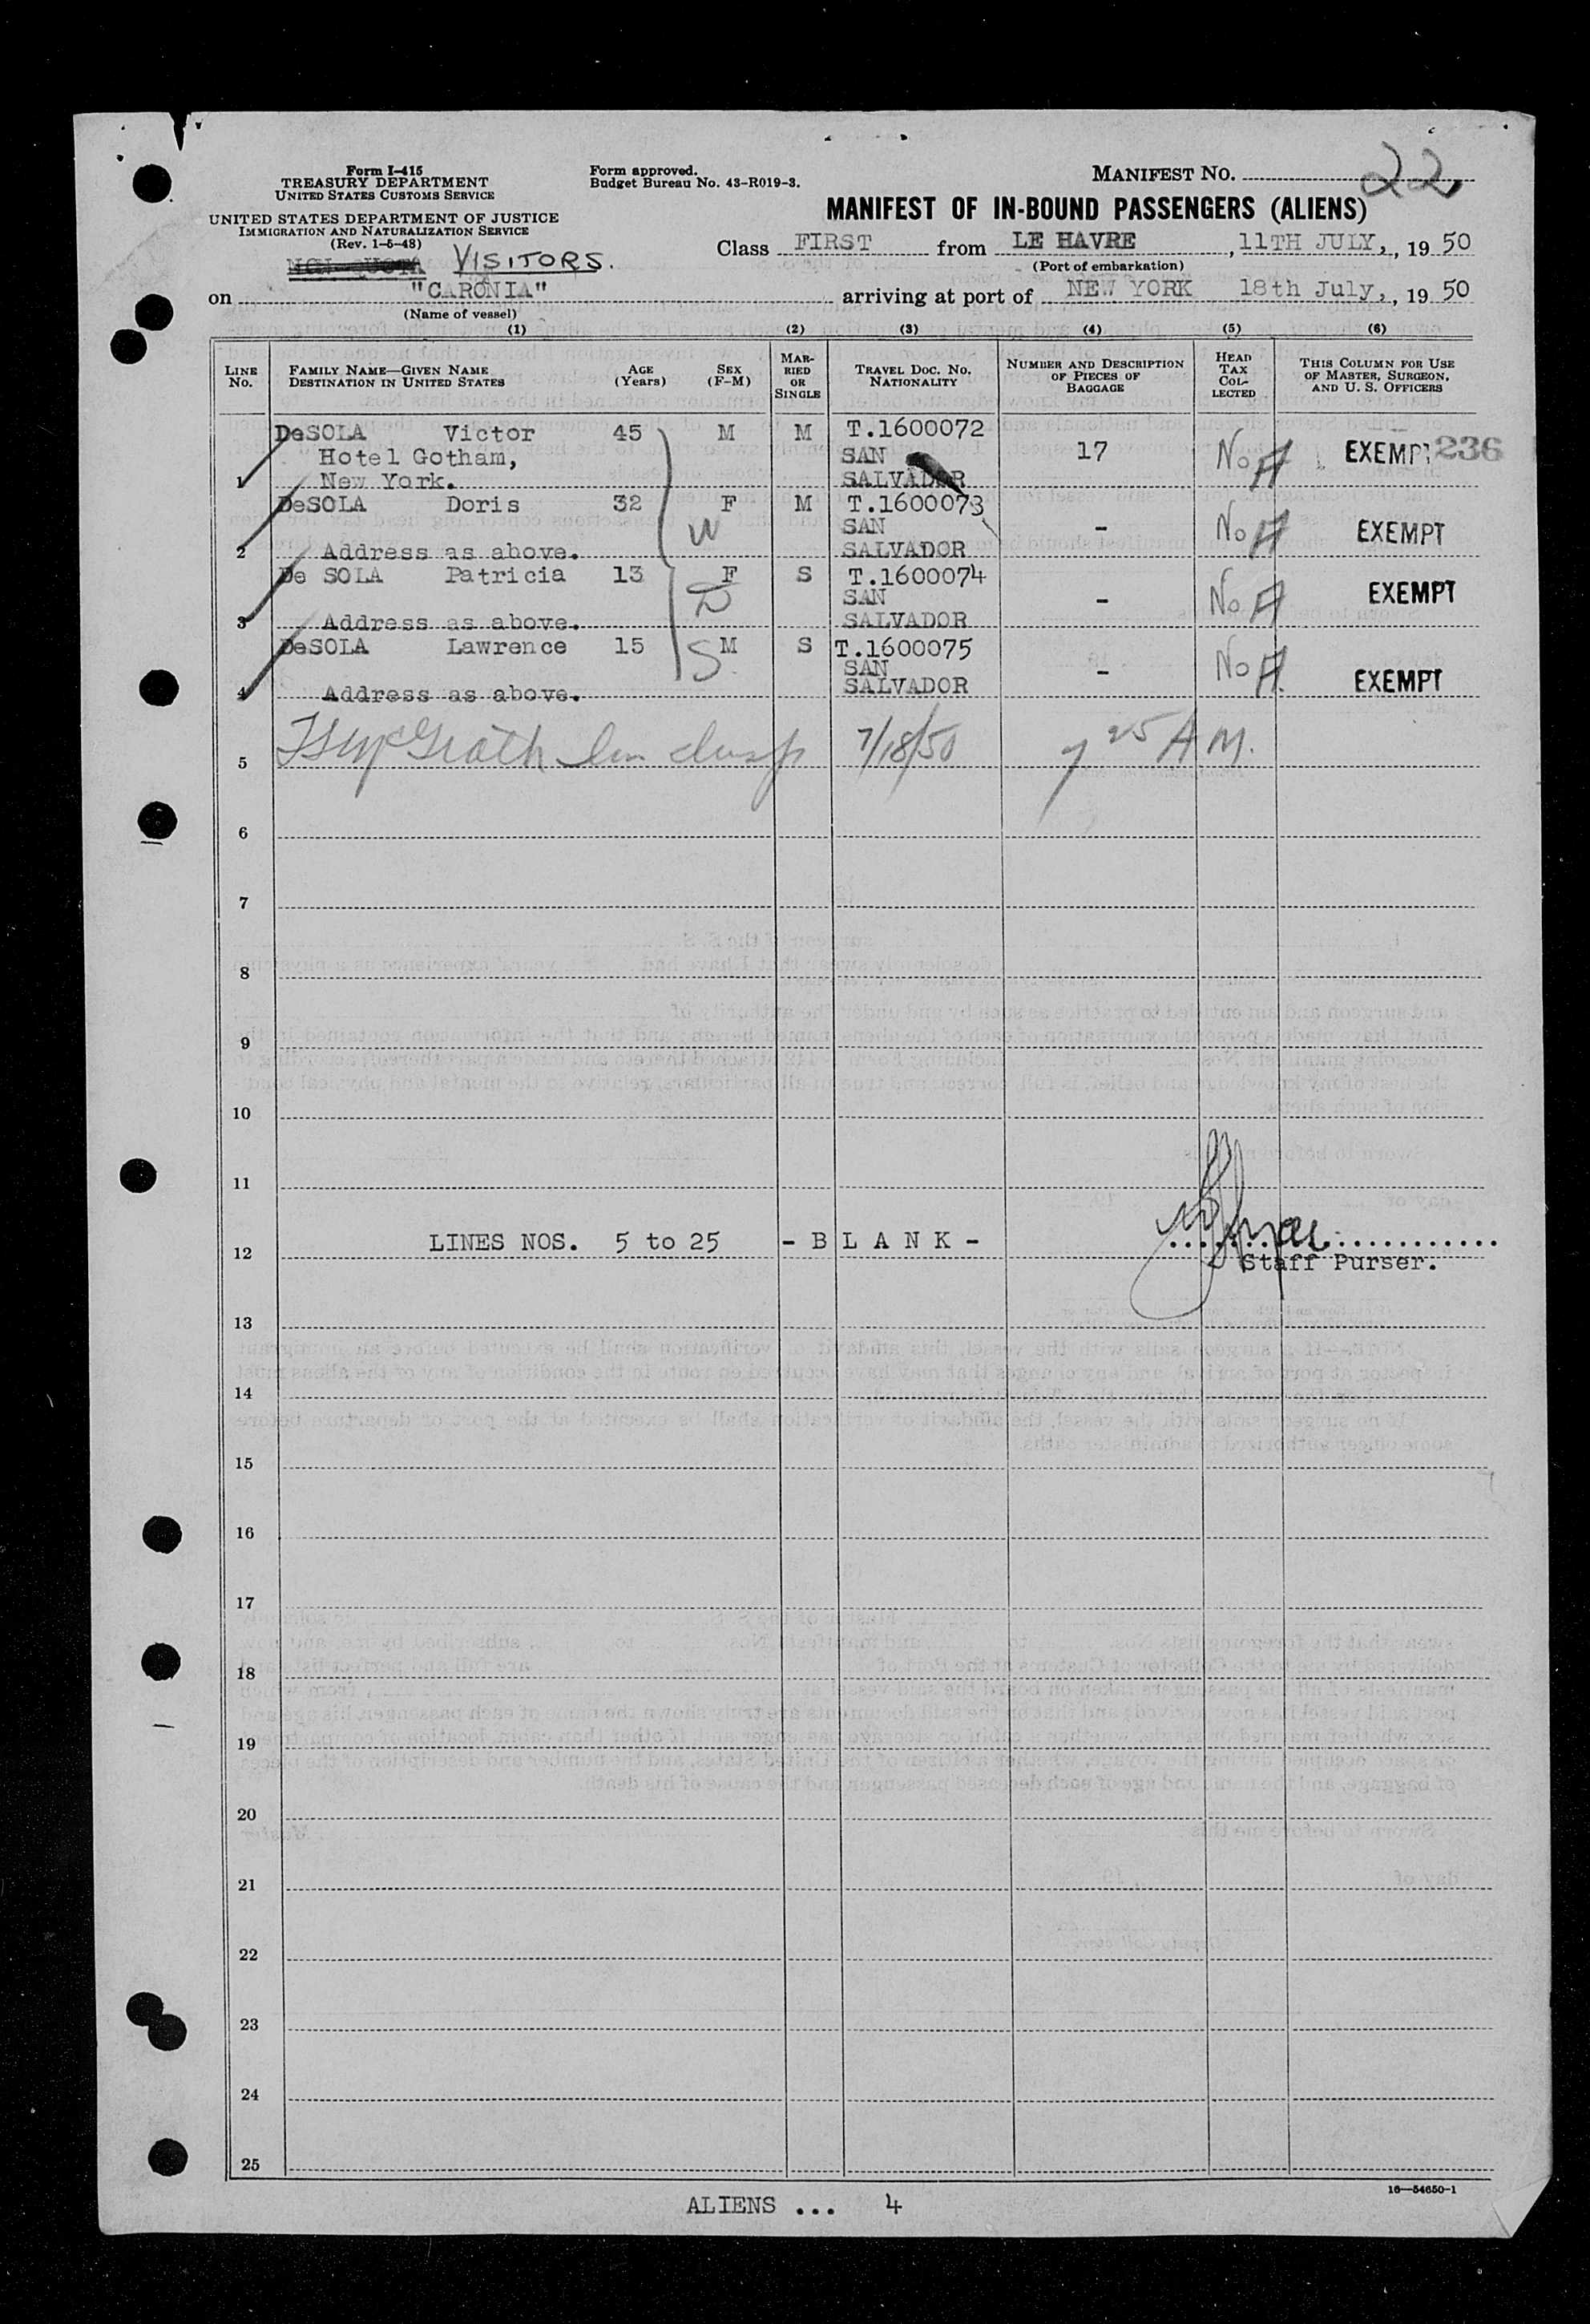 Form I-415
TREASURY DEPARTMENT
UNITED STATES CUSTOMS SERVICE
UNITED STATES DEPARTMENT OF JUSTICE
IMMIGRATION AND NATURALIZATION SERVICE
(Rev. 1-5-48)
Form approved.
Budget Bureau No. 43-R019-3.
MANIFEST NO. 22
MANIFEST OF IN-BOUND PASSENGERS (ALIENS)
Class FIRST from LE HAVRE, 11TH JULY, , 19 50
(Port of embarkation)
NON QUOTA VISITORS.
on "CARONIA" arriving at port of NEW YORK 18th July, , 19 50
(Name of vessel)
(1) (2) (3) (4) (5) (6)
LINE No. FAMILY NAME—GIVEN NAME DESTINATION IN UNITED STATES AGE (Years) SEX (F-M) MARRIED OR SINGLE TRAVEL DOC. NO. NATIONALITY NUMBER AND DESCRIPTION OF PIECES OF BAGGAGE HEAD TAX COLLECTED THIS COLUMN FOR USE OF MASTER, SURGEON, AND U. S. OFFICERS
DeSOLA Victor 45 M M T.1600072
Hotel Gotham, SAN 17 No EXEMPT 236
1 New York. SALVADOR
DeSOLA Doris 32 F M T.1600073
W SAN - No EXEMPT
2 Address as above. SALVADOR
De SOLA Patricia 13 F S T.1600074
D SAN - No EXEMPT
3 Address as above. SALVADOR
DeSOLA Lawrence 15 M S T.1600075
S SAN - No EXEMPT
4 Address as above. SALVADOR
5 McGrath 7/18/50 7 25 A M.
6
7
8
9
10
11
12 LINES NOS. 5 to 25 - B L A N K -
Staff Purser.
13
14
15
16
17
18
19
20
21
22
23
24
25
16—54650-1
ALIENS ... 4